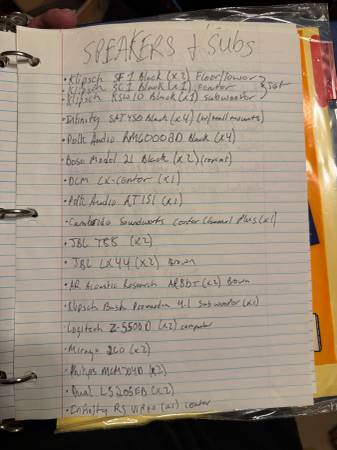 SPEAKERS & SUBS
• Klipsch SF1 Black (x2) Floor/Tower
• Klipsch SC1 Black (x1) center
• Klipsch KSW10 Black (x1) subwoofer
SET
• Infinity SAT450 Black (x4) (w/wall mounts)
• Polk Audio RM6000BD Black (x4)
• Bose Model 21 Black (x2)
• DCM CX-Center (x1)
• Polk Audio RT151 (x1)
• Cambridge Soundworks Center Channel Plus (x1)
• JBL T65 (x2)
• JBL LX44 (x2) Brown
• AR Acoustic Research (x2) Brown
• Klipsch Promedia 4.1 Subwoofer (x1)
• Logitech Z-5500D (x2) computer
• Mirage 260 (x2)
• Philips MCM704D (x2)
• Dual LS205EB (x2)
• Infinity RS Video (x1) center